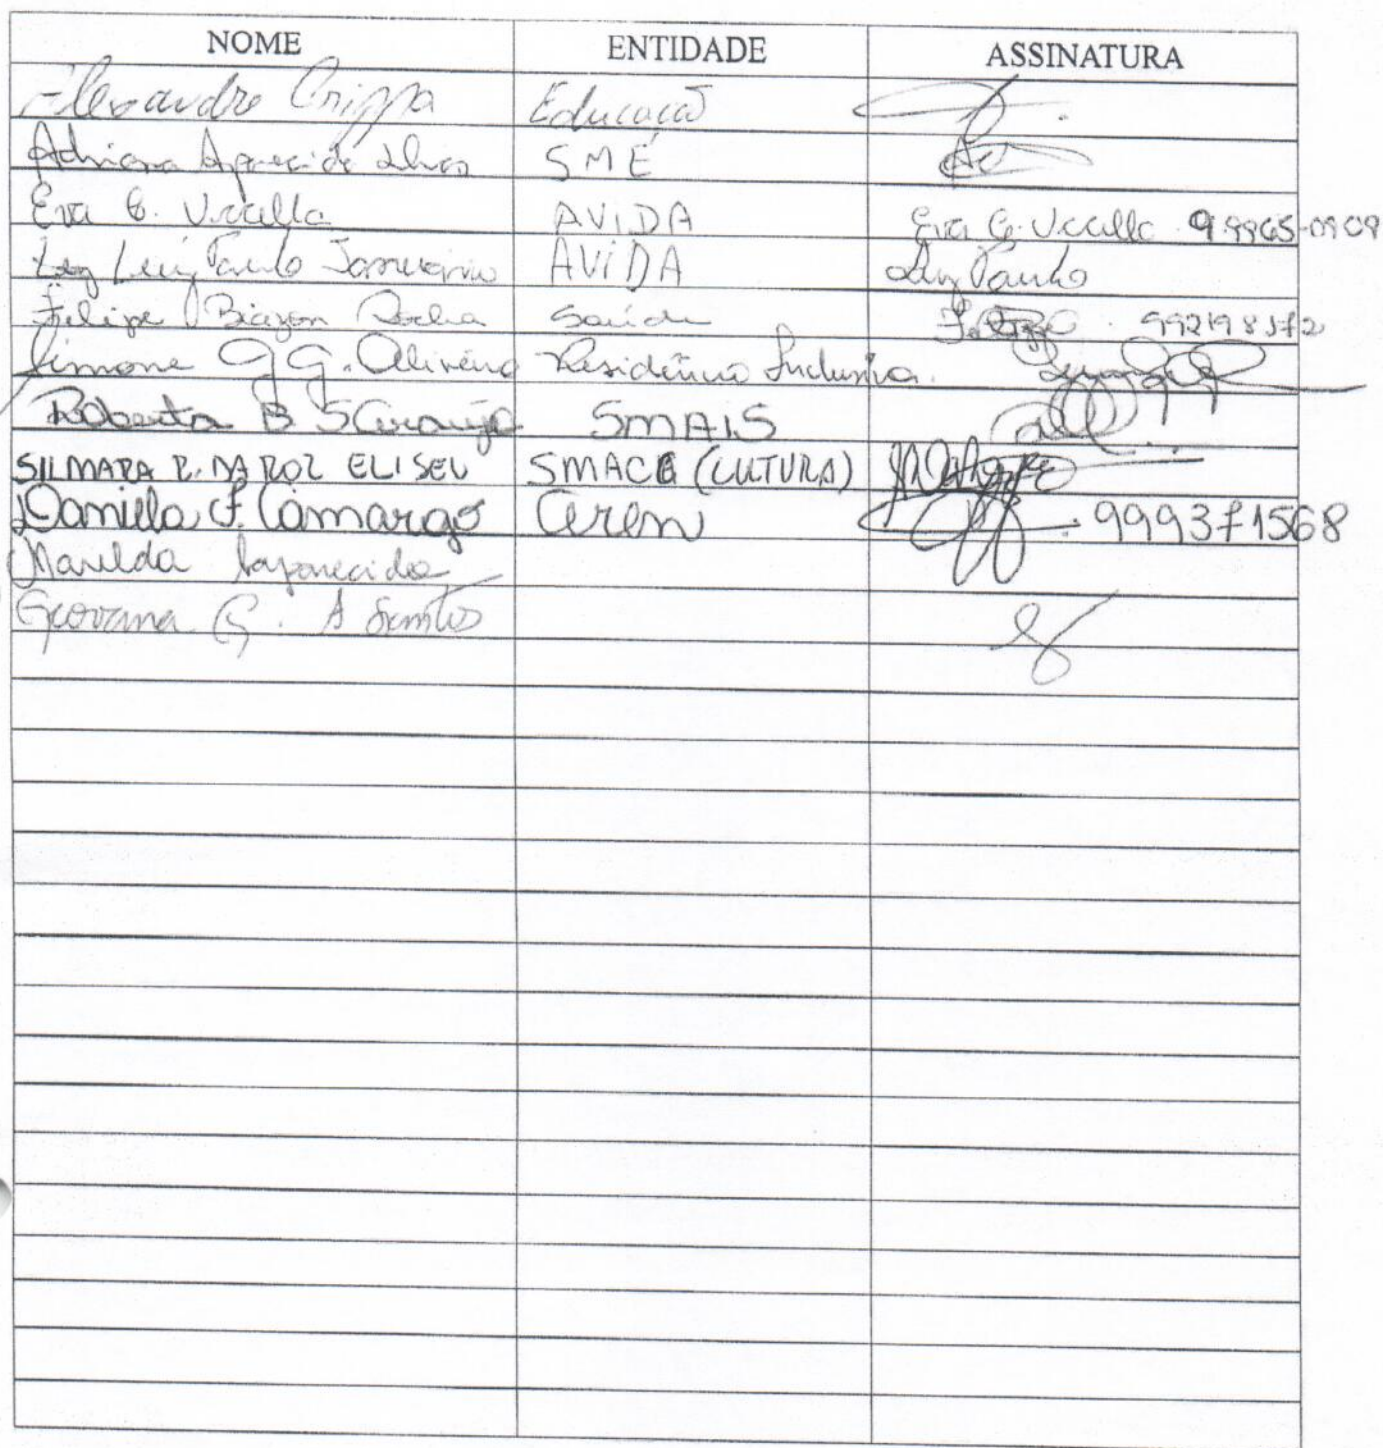 NOME ENTIDADE ASSINATURA
Alexandre Crippa Educação
Adriana Aparecida Alves SME
Eva G. Uccella AVIDA Eva G. Uccella 9 9965-0909
Luiz Paulo Januario AVIDA Luiz Paulo
Felipe Biazon Rocha Saúde 992198372
Simone G G. Oliveira Residência Inclusiva.
Roberta B S Araujo SMAIS
SILMARA R. DAROZ ELISEU SMACE (CULTURA)
Danilla F. Camargo Ceren 999371568
Marilda Aparecida
Geovana G. A Santos